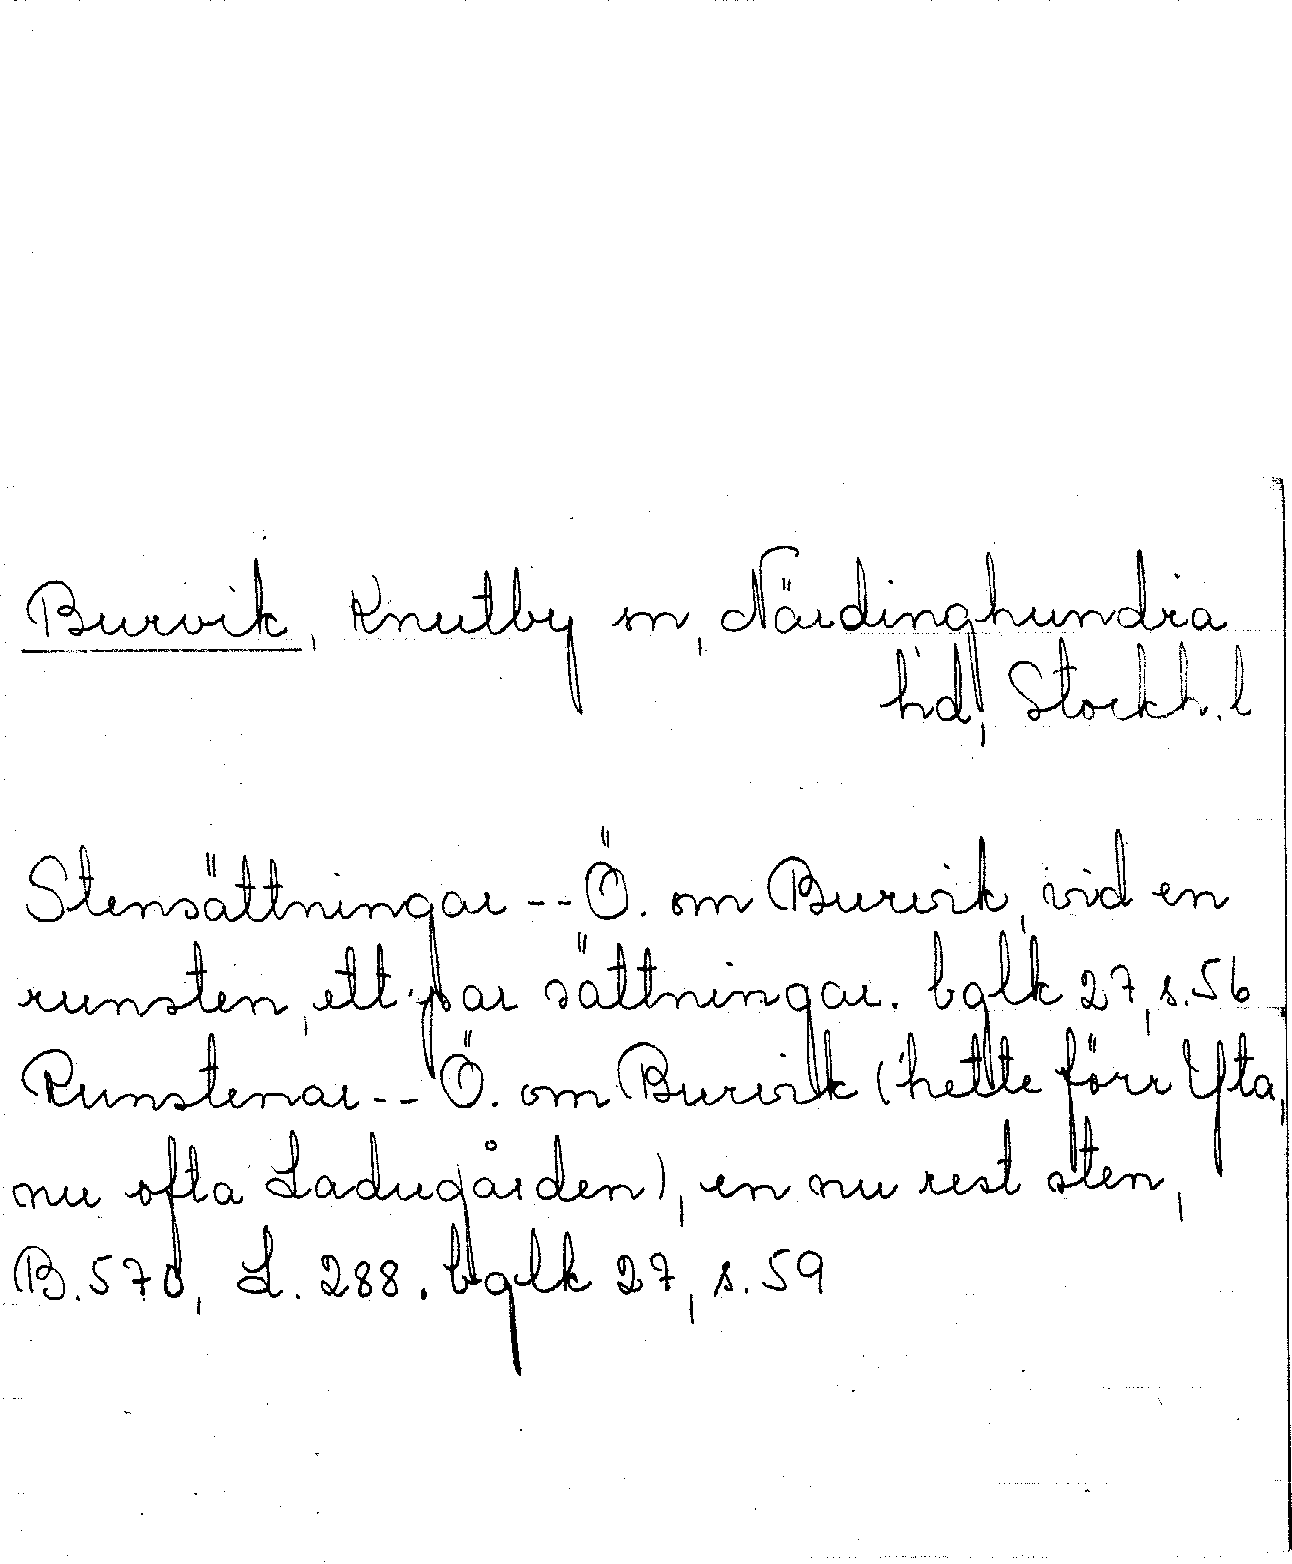 Burvik, Knutby sn, Närdinghundra
hd, Stockh. l
Stensättningar -- Ö. om Burvik, vid en
runsten, ett par sättningar. bglk 27, s. 56
Runstenar -- Ö. om Burvik (hette förr Yfta,
nu ofta Ladugården), en nu rest sten,
B. 570, L. 288. bglk 27, s. 59